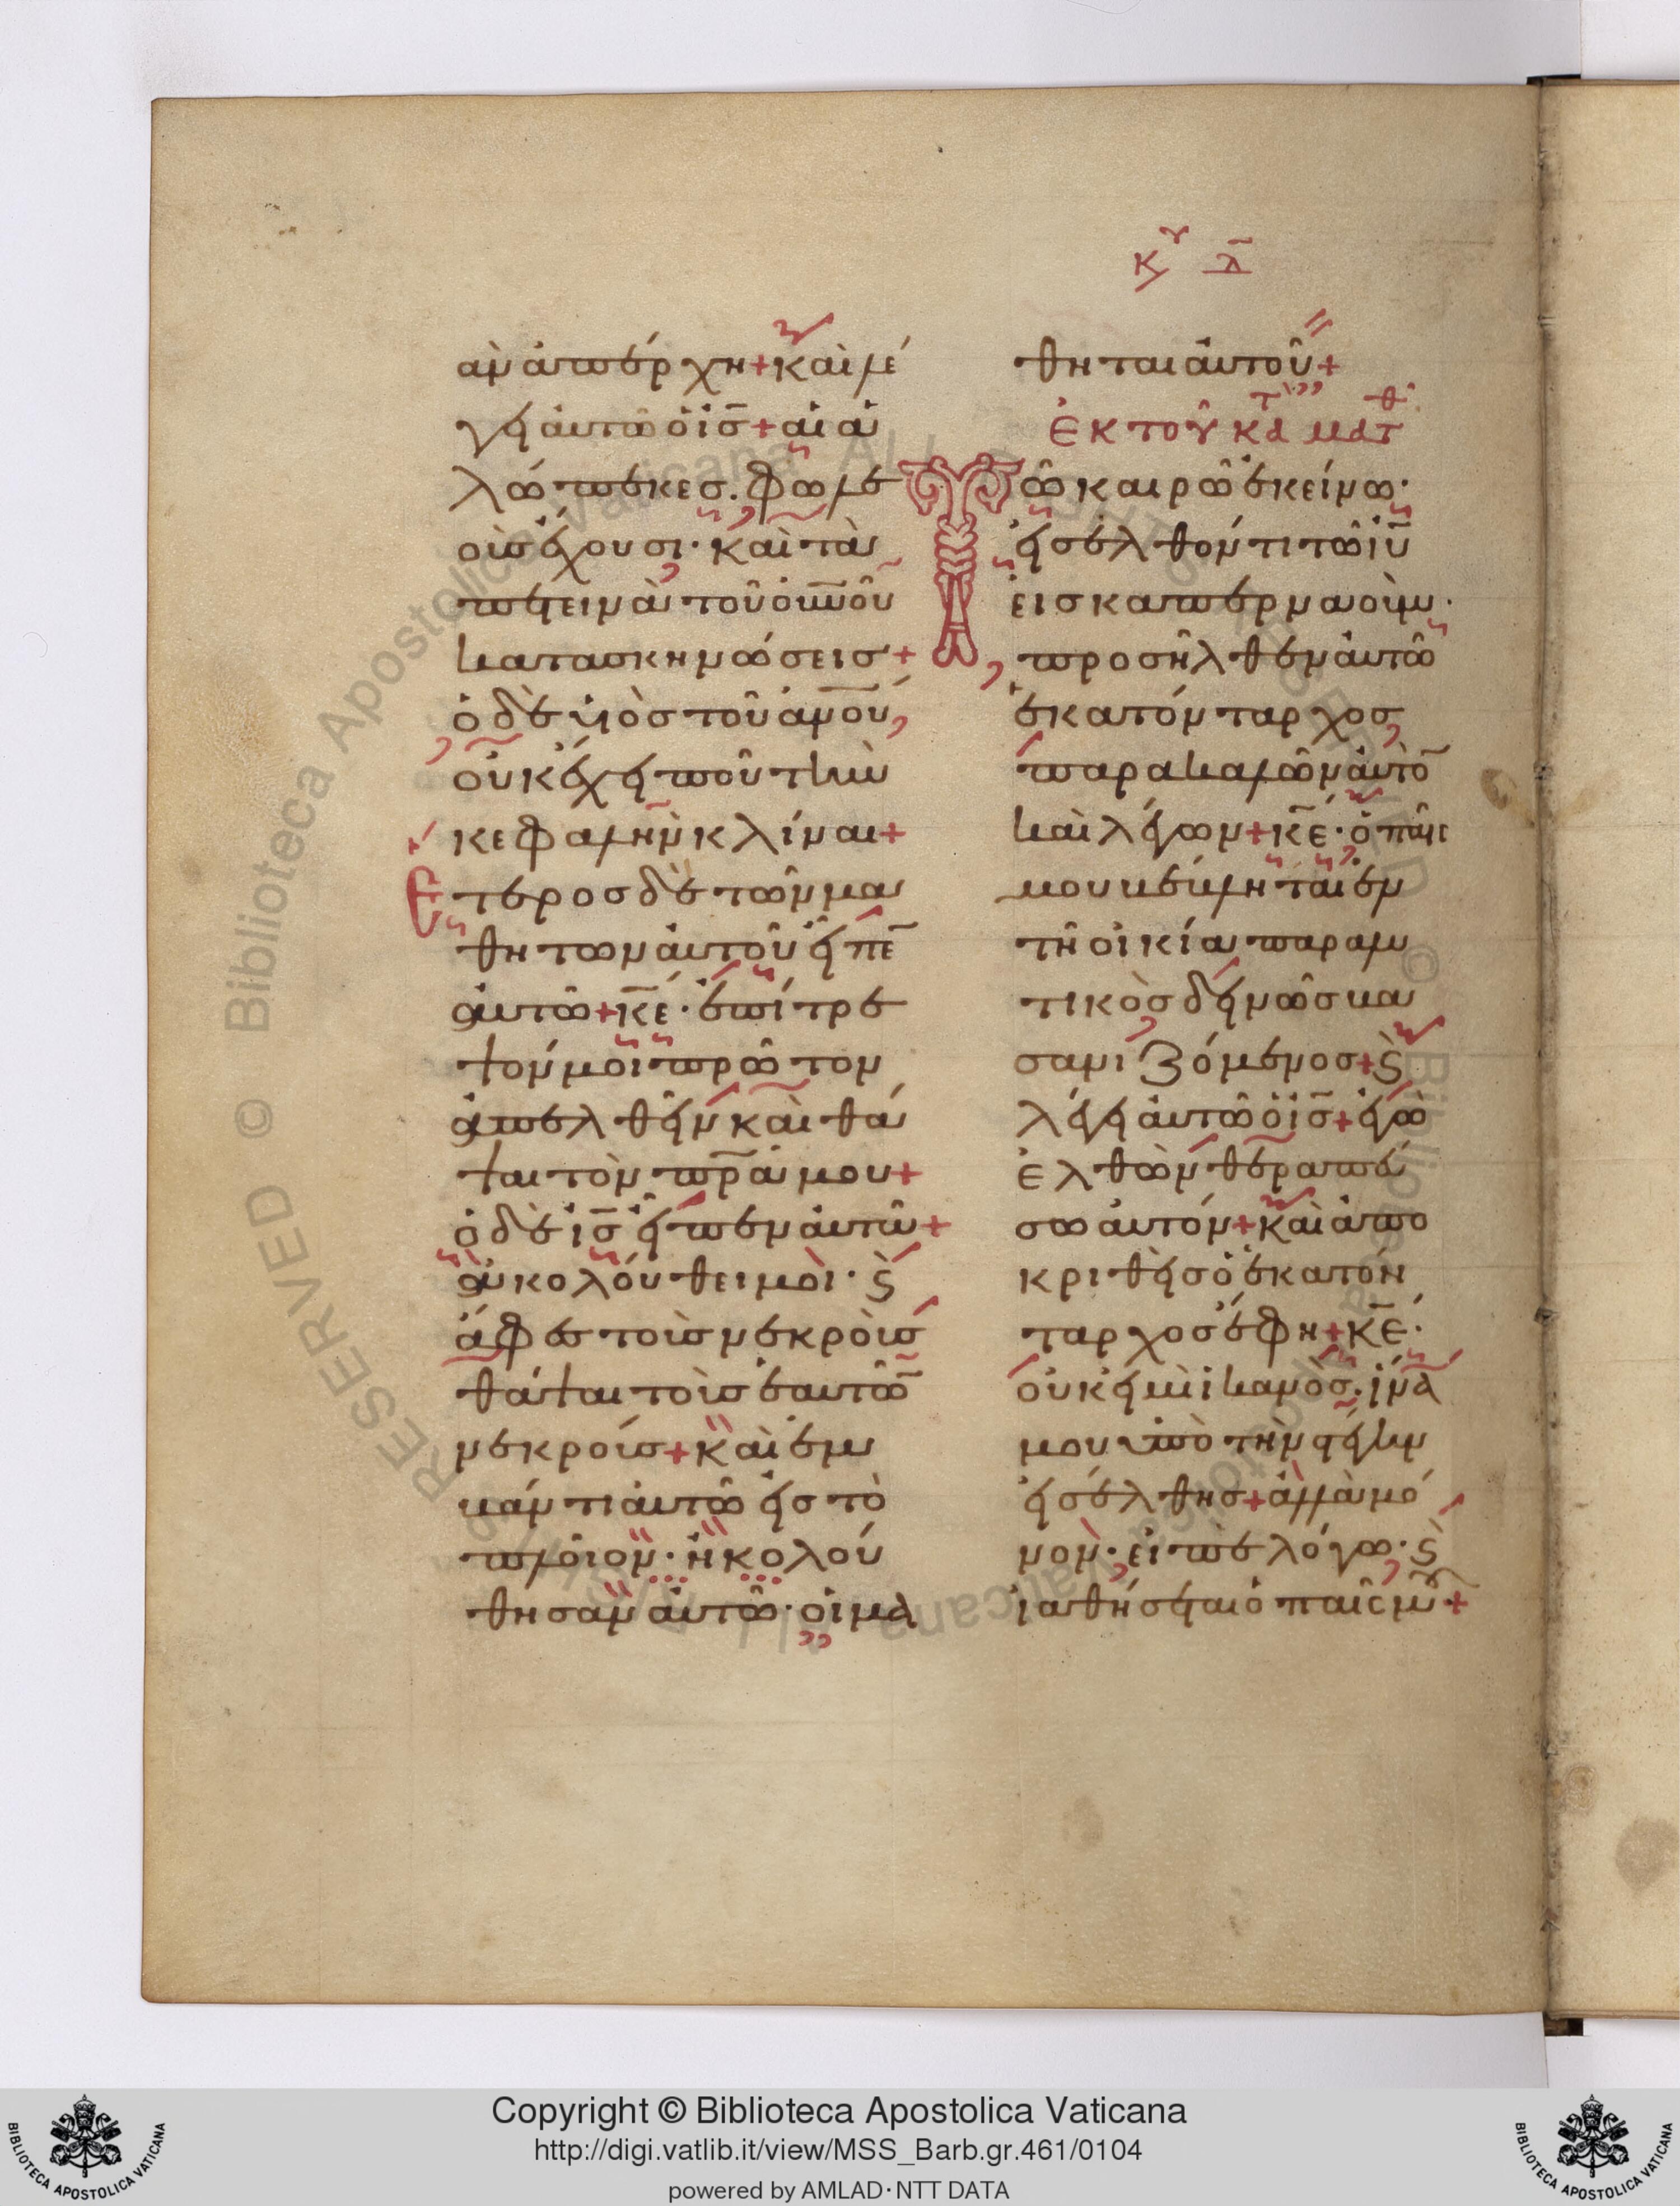 κυ λ
ἂν ἀπέρχη + καὶ λέ
γει αὐτῶ ὁ ις + αἱ ἀ
λώπεκες. φωλε
οὺς ἔχουσι · καὶ τὰ
πετεινὰ τοῦ οὐνοῦ
κατασκηνώσεις +
ὁ δὲ υἱὸς τοῦ ἀνου,
οὐκ ἔχει ποῦ τὴν
κεφαλὴν κλίναι +
Ετερος δὲ τῶν μα
θητων αὐτοῦ εἶπε
αὐτῶ + κε · ἐπίτρε
ψόν μοι πρῶτον
ἀπελθεῖν καὶ θά
ψαι τὸν πρα μου +
ὁ δὲ ις εἶπεν αὐτῶ +
ἀκολούθει μοι · ϗ
ἄφες τοὺς νεκροὺς
θάψαι τοὺς ἑαυτῶ
νεκρούς + καὶ ἐμ
βάντι αὐτῶ εἰς τὸ
πλοῖον · ἠκολού
θησαν αὐτῶ · οἱ μα
θηται αὐτοῦ +
ἐκ τοῦ κατὰ ματθ
Τῶ καιρῶ ἐκείνω ·
εἰσελθόντι τῶ ιυ
εἰς καπερναούμ ·
προσῆλθεν αὐτῶ
ἑκατόνταρχος
παρακαλῶν αὐτὸ
καὶ λέγων + κε · ὁ παῖς
μου βέβληται ἐν
τῆ οἰκία παραλυ
τικὸς δεινῶς βα
σανιζόμενος + ϗ
λέγει αὐτῶ ὁ ις + ἐγὼ
ἐλθὼν θεραπεύ
σω αὐτόν + καὶ ἀπο
κριθεὶς ὁ ἑκατόν
ταρχος ἔφη + κε ·
οὐκ εἰμὶ ἱκανὸς. ἵνα
μου ὑπὸ τὴν στέγην
εἰσέλθης + ἀλλὰ μό
νον · εἰπὲ λόγω · ϗ
ἰαθήσεται ὁ παῖς μου +
Copyright © Biblioteca Apostolica Vaticana
http://digi.vatlib.it/view/MSS_Barb.gr.461/0104
powered by AMLAD·NTT DATA